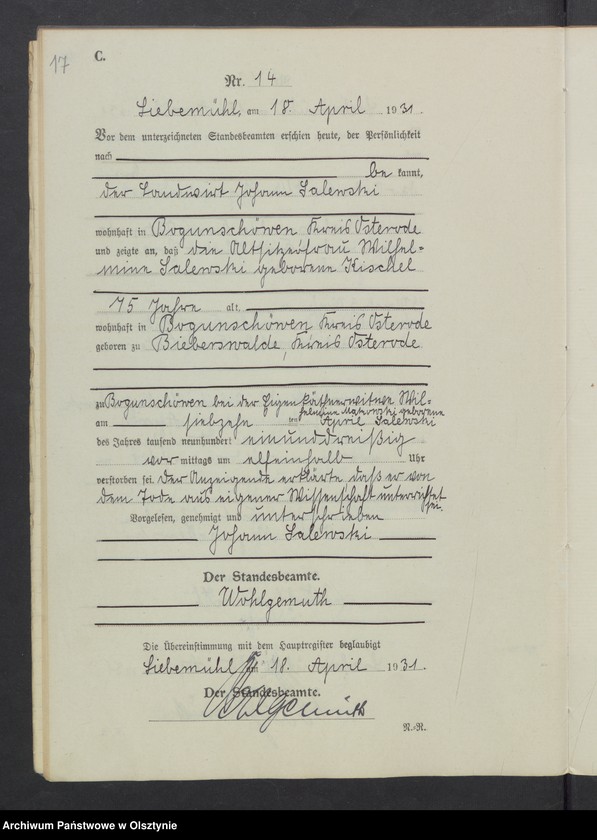 17
C.
Nr. 14
Liebemühl, am 18. April 1931.
Vor dem unterzeichneten Standesbeamten erschien heute, der Persönlichkeit
nach
be kannt,
der Landwirt Johann Salewski
wohnhaft in Bogunschöwen Kreis Osterode
und zeigte an, daß die Altsitzerfrau Wilhel=
mine Salewski geborene Kischel
75 Jahre alt,
wohnhaft in Bogunschöwen Kreis Osterode
geboren zu Bieberswalde, Kreis Osterode
zu Bogunschöwen bei der Eigenkäthnerwitwe Wil=
helmine Makowski geborene
am siebzehn ten April Salewski
des Jahres tausend neunhundert einunddreißig
vor mittags um elfeinhalb Uhr
verstorben sei. Der Anzeigende erklärte daß er von
dem Tode aus eigener Wissenschaft unterrichtet
sei.
Vorgelesen, genehmigt und unterschrieben
Johann Salewski
Der Standesbeamte.
Wohlgemuth
Die Übereinstimmung mit dem Hauptregister beglaubigt
Liebemühl, am 18. April 1931.
Der Standesbeamte.
Wohlgemuth
R.=R.
Archiwum Państwowe w Olsztynie